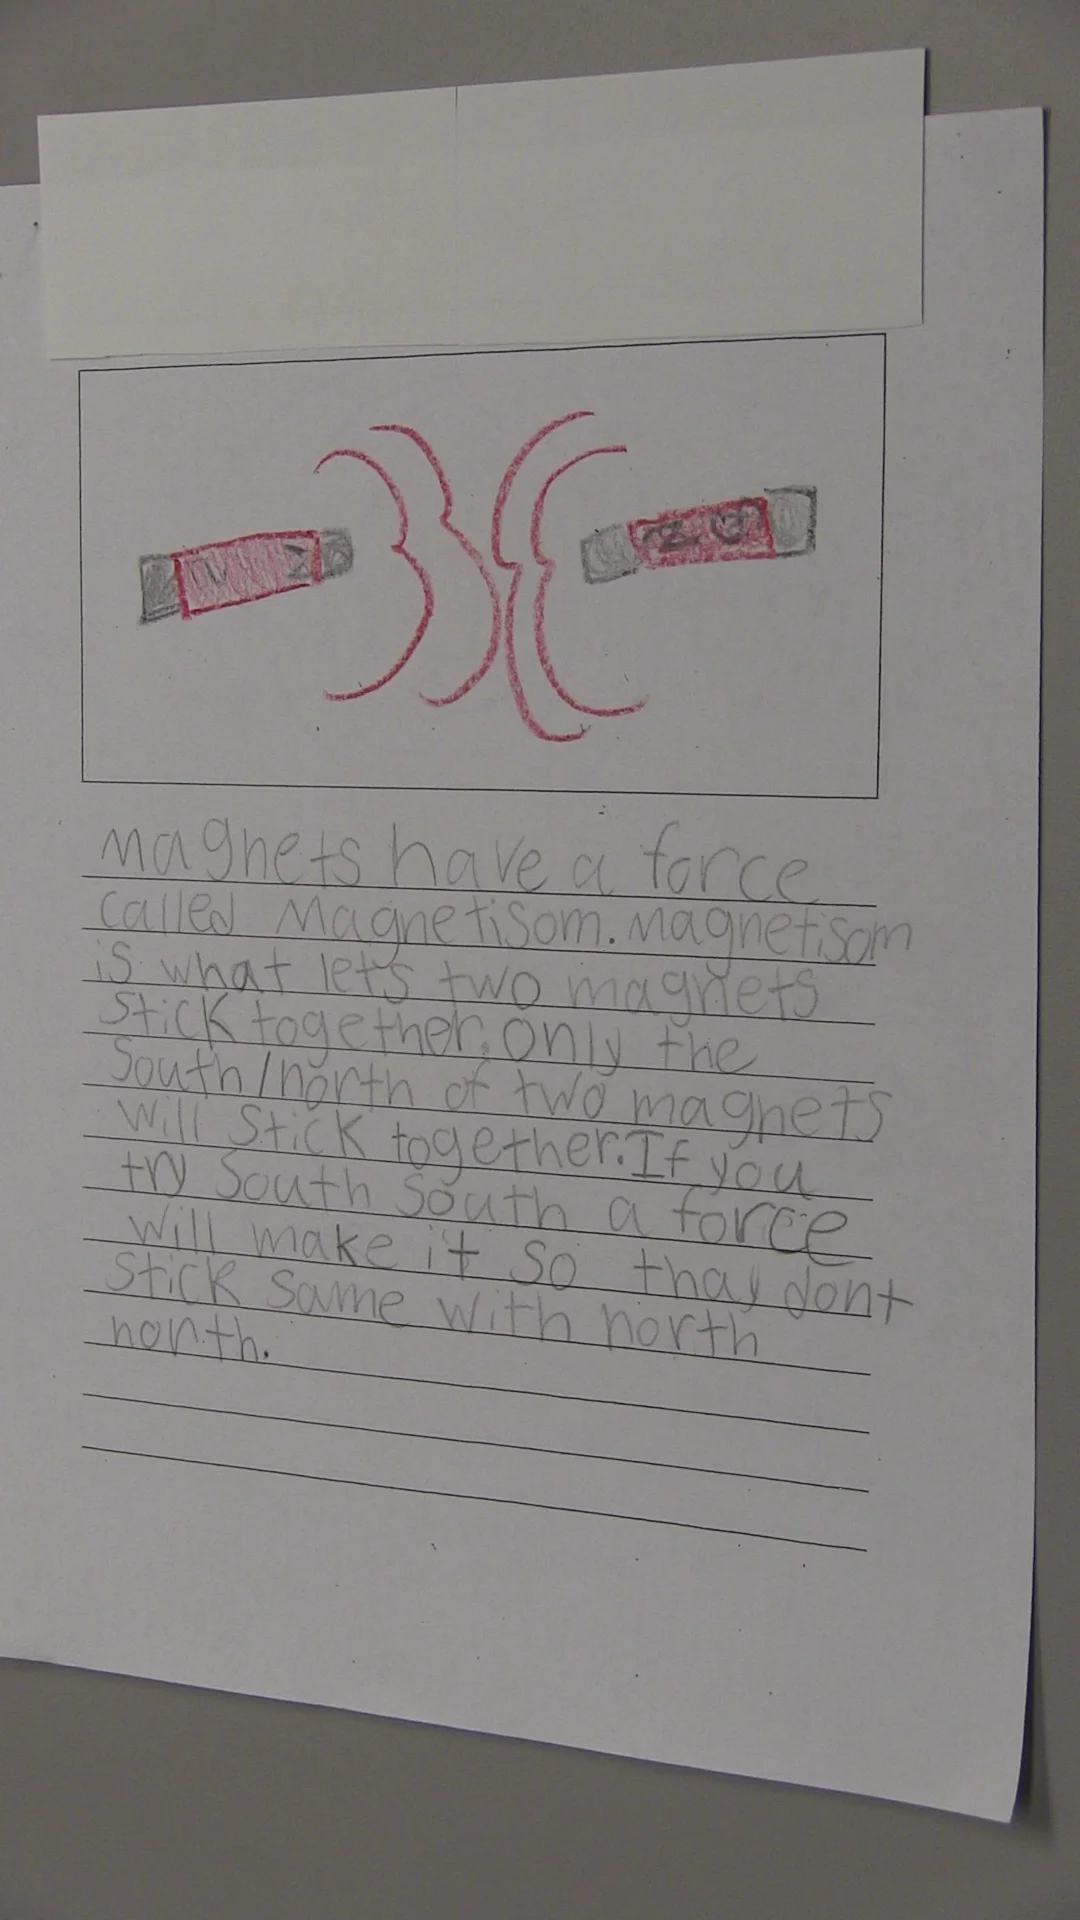 magnets have a force
called Magnetisom. magnetisom
is what let's two magnets
Stick together. only the
South/north of two magnets
will Stick together. If you
try South South a force
will make it so thay dont
Stick same with north
north.